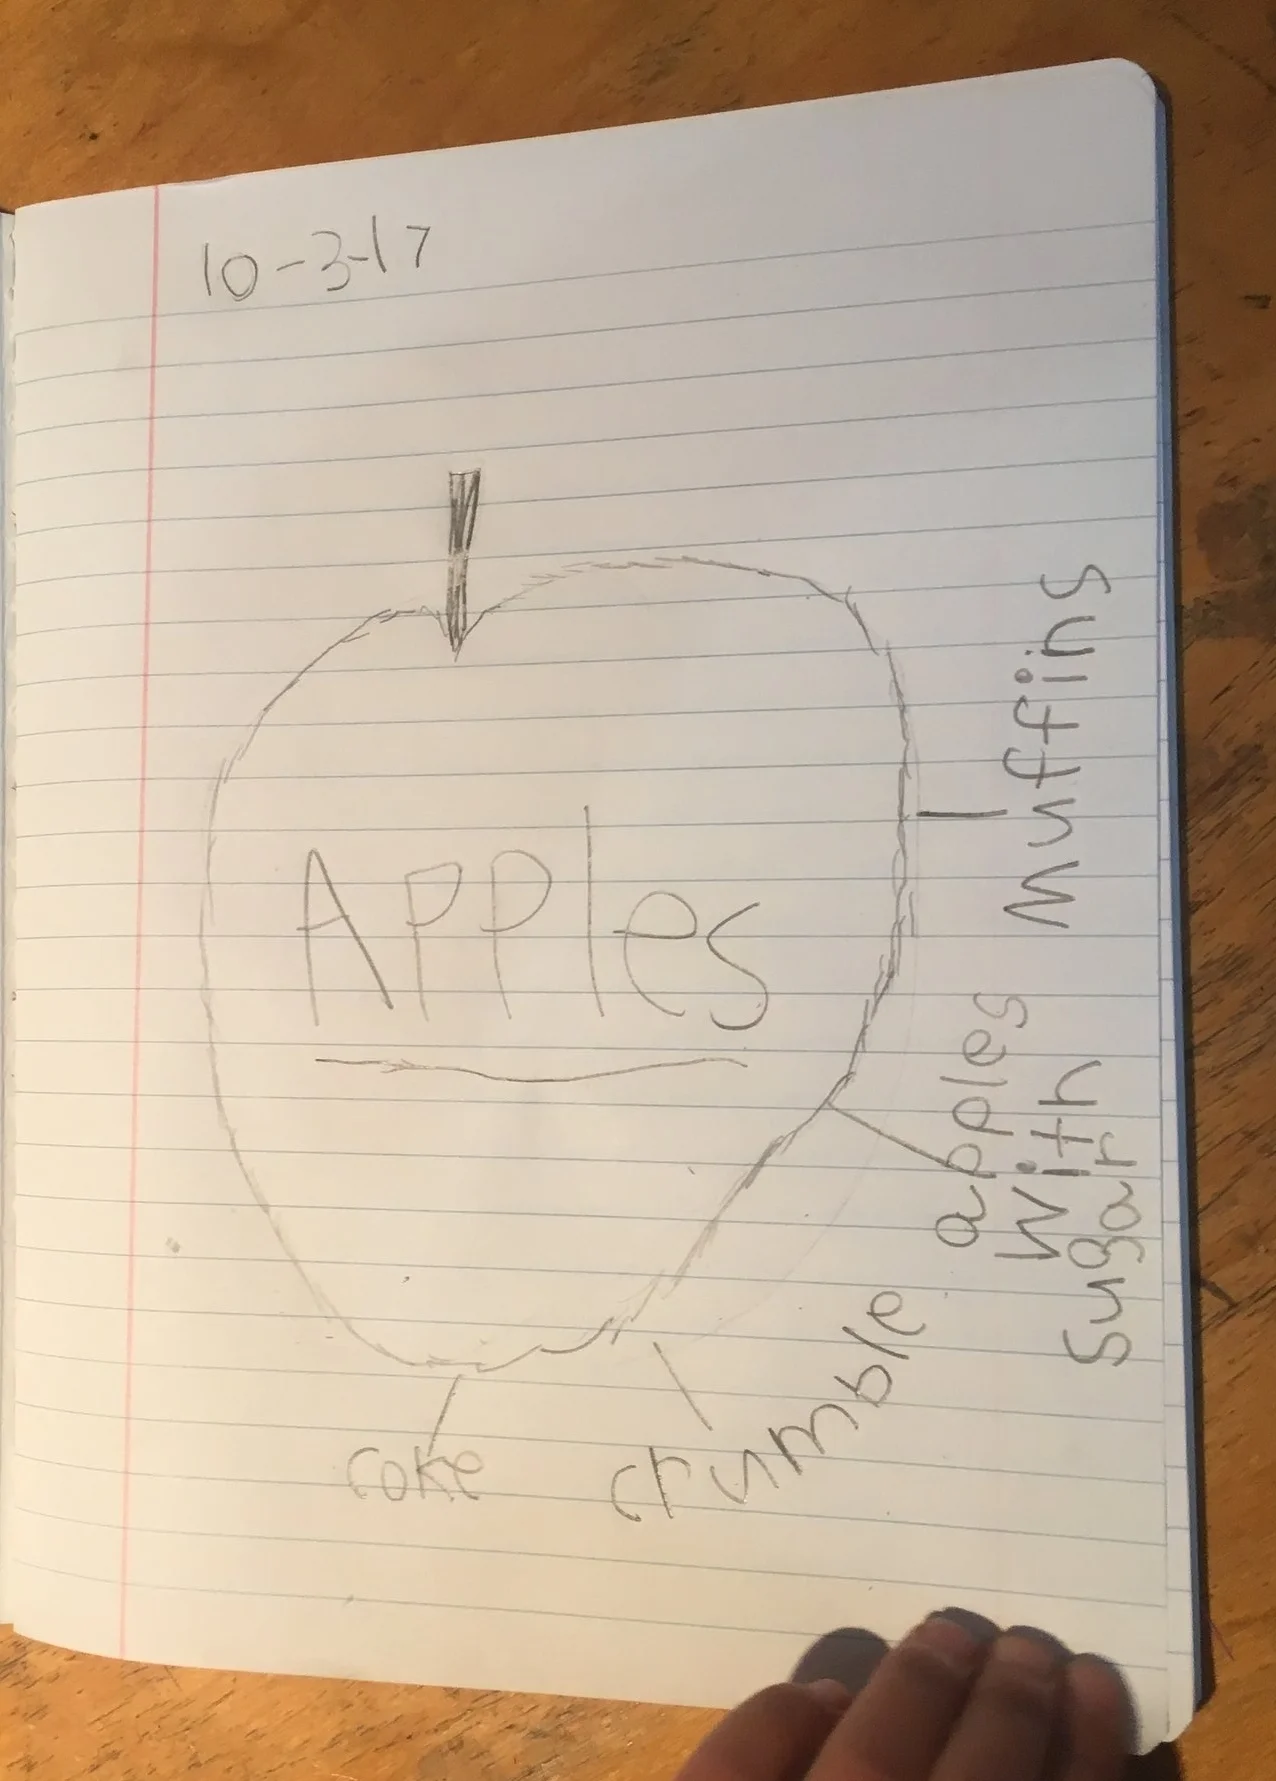 10-3-17
APPles
muffins
apples
with
sugar
crumble
coke